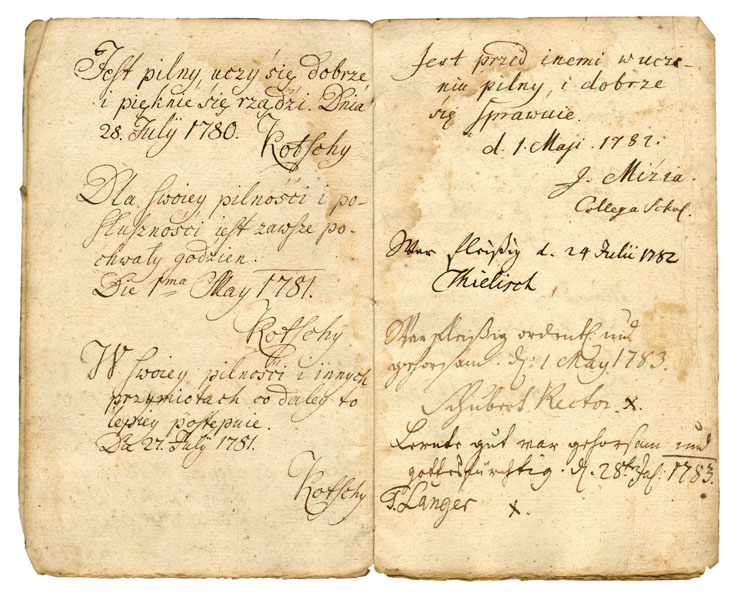 Jest pilny, uczy się dobrze
i pięknie się rządzi. Dnia
28. Julÿ 1780.
Kotschy
Dla swoiey pilności i po-
słuszności jest zawsze po-
chwały godzien.
Die 1ma May 1781.
Kotschy
W swoiey pilności i innych
przymiotach co daley to
lepiey postępuie.
27. Julÿ 1781.
Kotschy
Jest przed inemi w ucze-
niu pilny, i dobrze
się sprawuie.
d. 1. Maji. 1782.
J. Mizia.
Collega Schol.
War fleißig d. 24 Julii 1782
Thielisch
War fleißig ordentl. und
gehorsam. d. 1 May 1783.
Schubert Rector. x.
Lernte gut war gehorsam und
gottesfürchtig. d. 28t 1783.
Langer x.